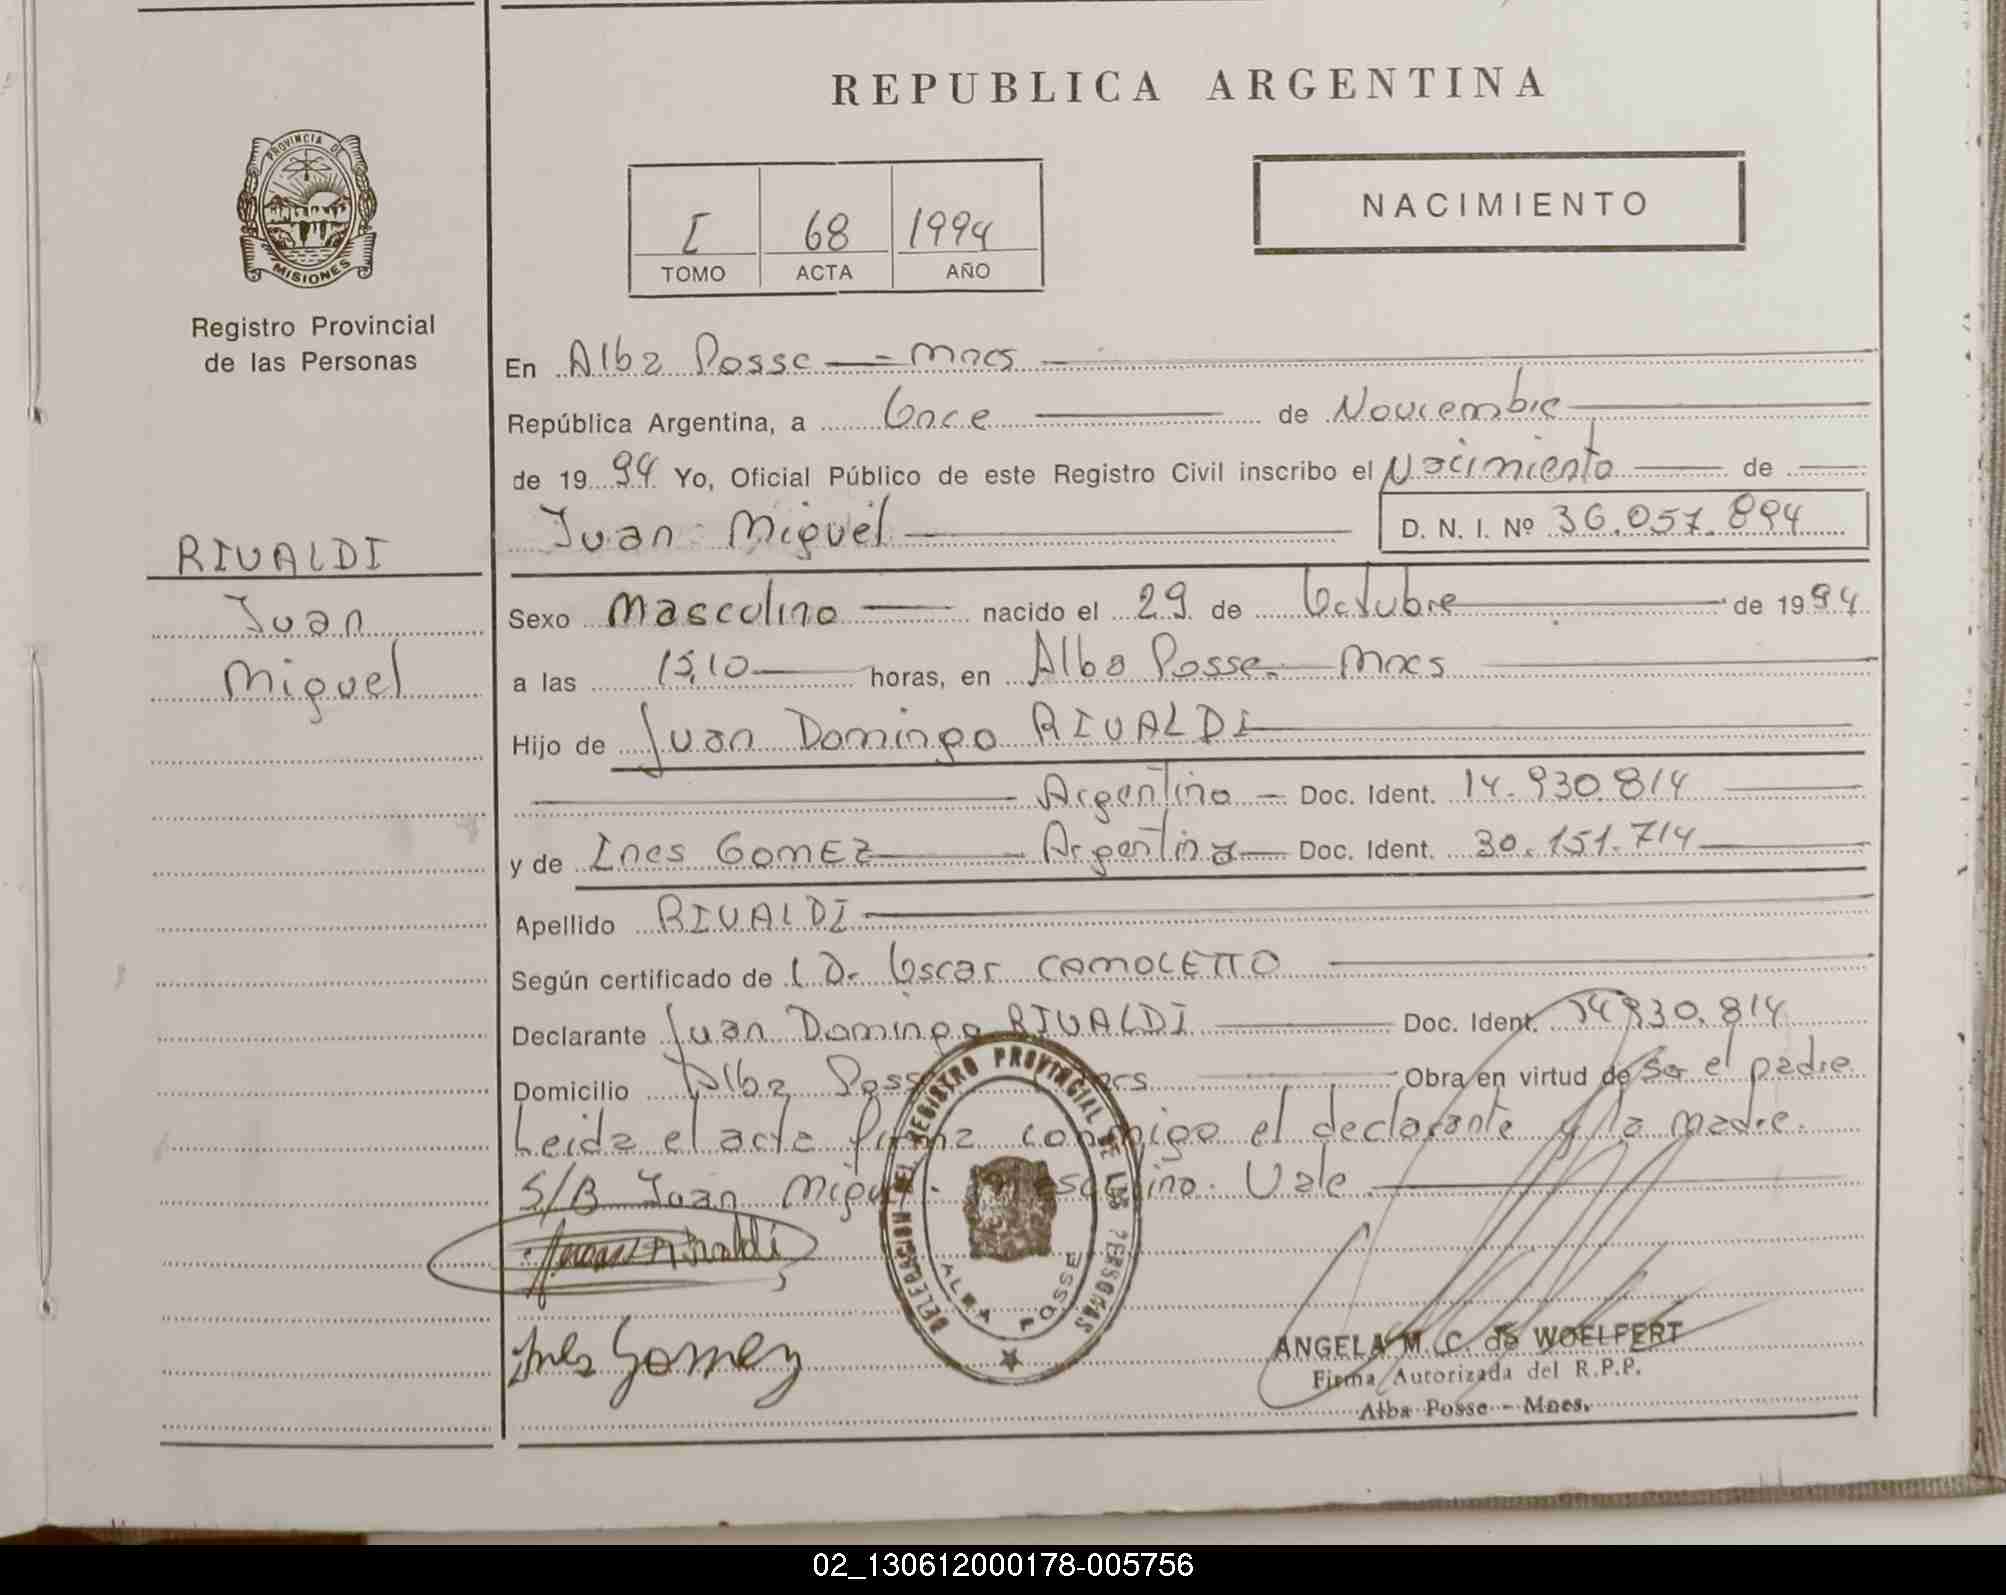 REPUBLICA ARGENTINA
PROVINCIA DE
MISIONES
Registro Provincial
de las Personas
I 68 1994
TOMO ACTA AÑO
NACIMIENTO
RIVALDI
Juan
Miguel
En Alba Posse — Mnes
República Argentina, a Once de Noviembre
de 1994 Yo, Oficial Público de este Registro Civil inscribo el Nacimiento de
Juan Miguel D. N. I. Nº 36.057.894
Sexo Masculino nacido el 29 de Octubre de 1994
a las 15,10 horas, en Alba Posse. Mnes
Hijo de Juan Domingo RIVALDI
Argentino — Doc. Ident. 14.930.814
y de Ines GOMEZ Argentina — Doc. Ident. 30.151.714
Apellido RIVALDI
Según certificado de Dr. Oscar CAMOLETTO
Declarante Juan Domingo RIVALDI Doc. Ident. 14930.814
Domicilio Alba Posse Mnes Obra en virtud de ser el padre
Leida el acta firma conmigo el declarante y la madre.
S/B Juan Miguel. Masculino. Vale
Ines Gomez
DELEGACION DEL REGISTRO PROVINCIAL DE LAS PERSONAS
ALBA POSSE
ANGELA M. C. de WOELFERT
Firma Autorizada del R.P.P.
Alba Posse - Mnes.
02_130612000178-005756